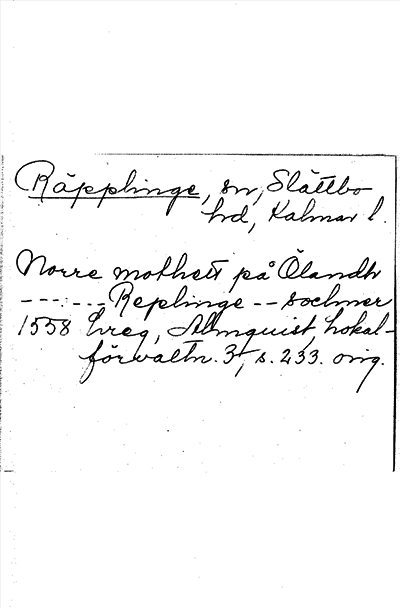 Räpplinge, sn, Slättbo
hd, Kalmar l.
Norre mothett på Ölandh
------- Replinge -- sochner
1558 Hreg, Almquist, Lokal-
förvaltn. 3, s. 233. orig.